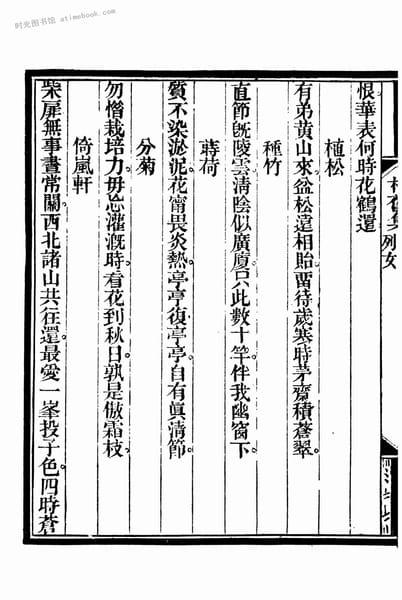 时光图书馆 atimebook.com
恨華表何時花鶴還
植松
有弟黄山來盆松遠相貽畱待歲寒時茅齋積蒼翠
種竹
直節旣陵雲淸陰似廣廈只此數十竿伴我幽窗下
蒔荷
質不染淤泥花甯畏炎熱亭亭復亭亭自有眞淸節
分菊
勿憎栽培力毋忘灌漑時看花到秋日孰是傲霜枝
倚嵐軒
柴扉無事晝常關西北諸山共往還最愛一峯投子色四時蒼